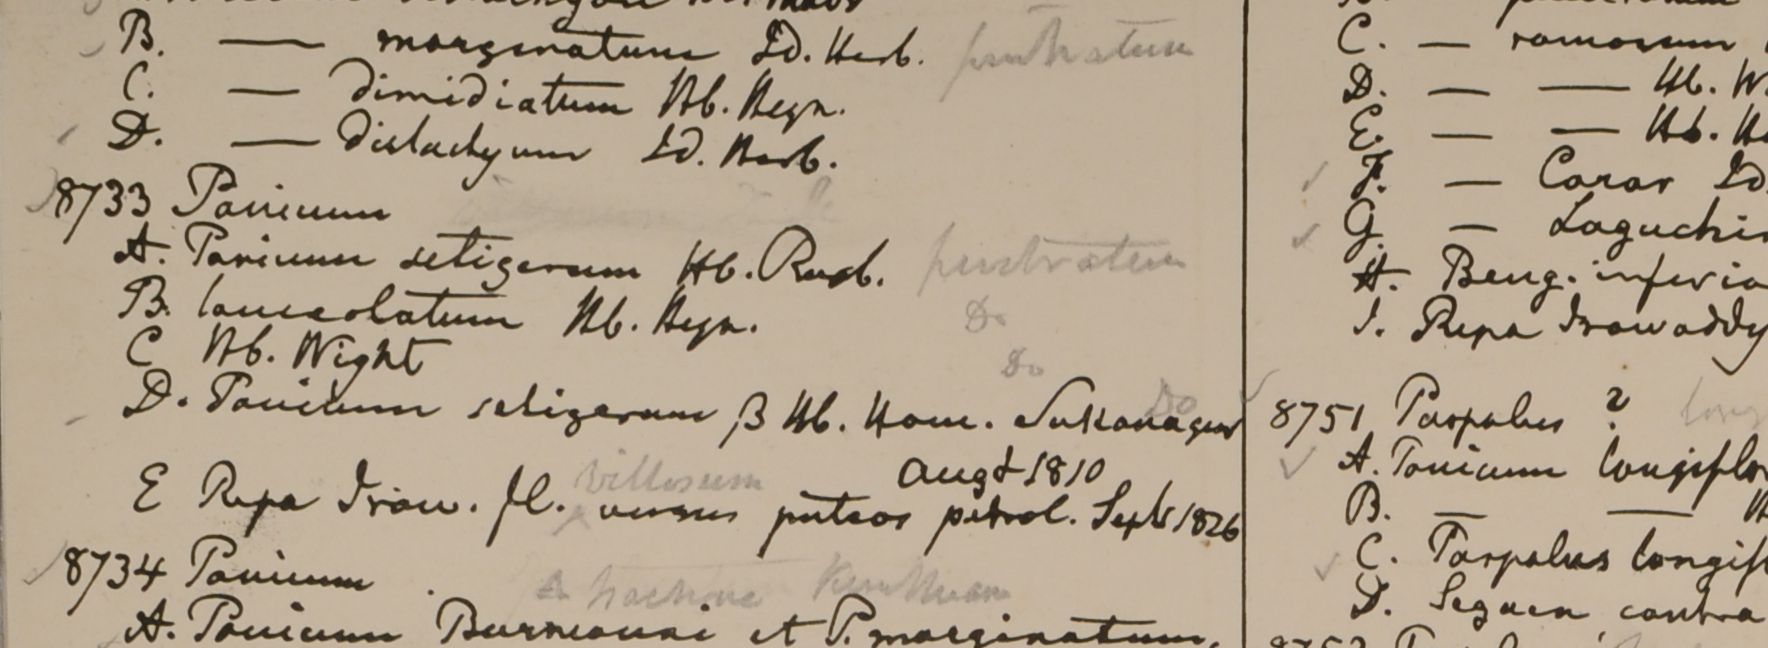 B. — marginatum Id. Herb. prostratum
C. — dimidiatum Hb. Heyn.
D. — distachyum Id. Herb.
8733 Panicum
A. Panicum setigerum Hb. Roxb. prostratum
B. lanceolatum Hb. Heyn. Do
C Hb. Wight Do
D. Panicum setigerum β Hb. Ham. Do
Augt 1810
villosum
E Ripa Iraw. fl. versus puteos petrol. Septr 1826
8734 Panicum
A. Panicum Burmanni et P. marginatum.
C. — ramosum
D. — — Hb. W
E. — — Hb. He
F. — Coror Id.
G. —
H. Beng. inferio
I. Ripa Irawaddy
8751 Paspalus ? long
A. Panicum longiflo
B. — — H
C. Paspalus longifl
D. Segaen contra